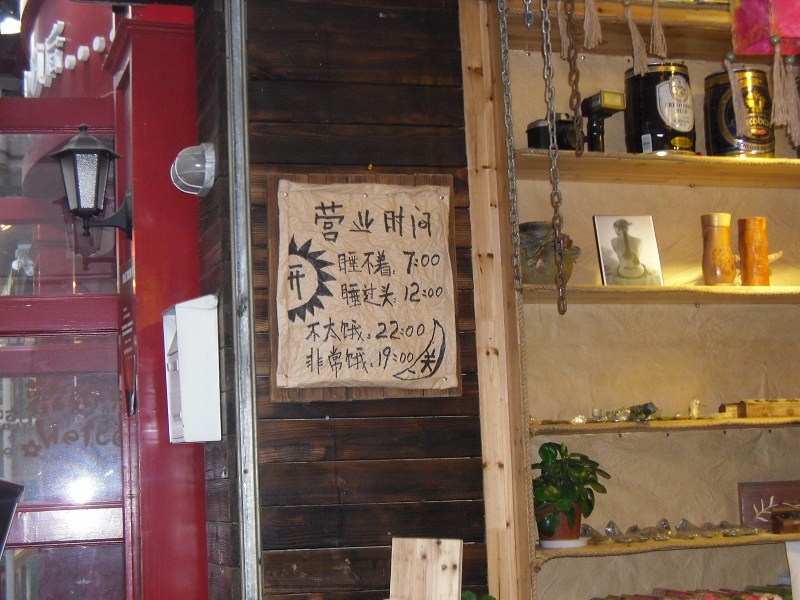 营业时间
开
睡不着: 7:00
睡过头: 12:00
不太饿: 22:00
非常饿: 19:00
关
Welco